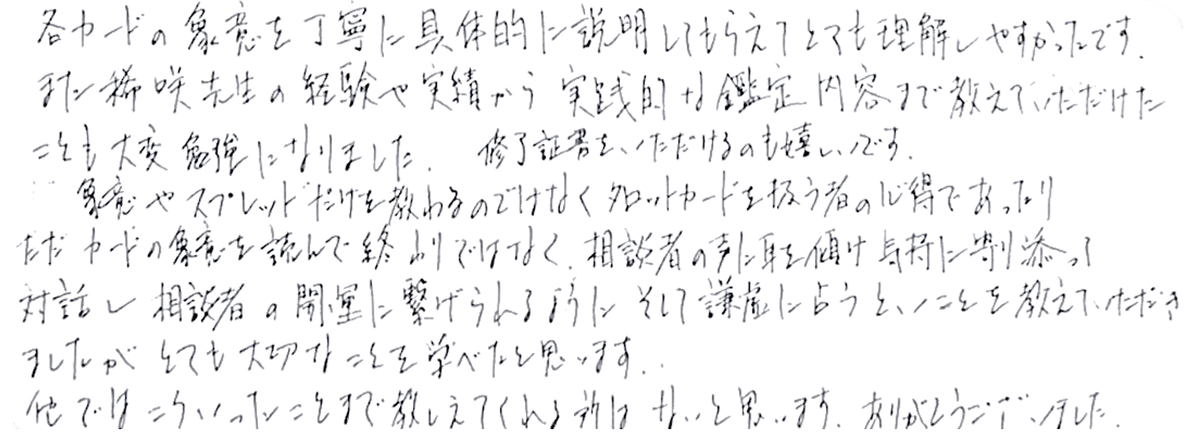 各カードの象意を丁寧に具体的に説明してもらえてとても理解しやすかったです.
また稀咲先生の経験や実績から実践的な鑑定内容まで教えていただけた
ことも大変勉強になりました. 修了証書をいただけるのも嬉しいです.
象意やスプレッドだけを教わるのではなくタロットカードを扱う者の心得であったり
ただカードの象意を読んで終わりではなく、相談者の声に耳を傾け気持に寄り添って
対話し相談者の開運に繋げられるようにそして謙虚に占うということを教えていただき
ましたがとても大切なことを学べたと思います..
他ではこういったことまで教えてくれる所はないと思います. ありがとうございました.